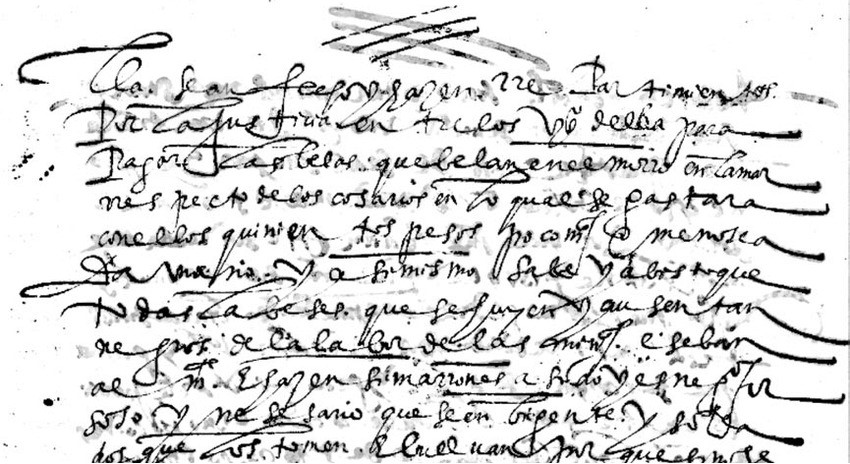 lla se an fecho y hazen rre partimientos
por la justicia en tre los vos della para
pagar las belas que belan en el morro en la mar
rres pecto de los cosarios en lo qual se gastara
con ellos quinien tos pesos poco mas o menos ca
da un año y a si mismo sabe y a bisto que
to das la beses que se huyen y au sen tan
ne gros de la la bor de las minas e se ban
al m.e e hazen simarrones a sido y es ne go for
soso y ne se sario que se en bie gente y solda
dos que los tomen e buelban por que si no se